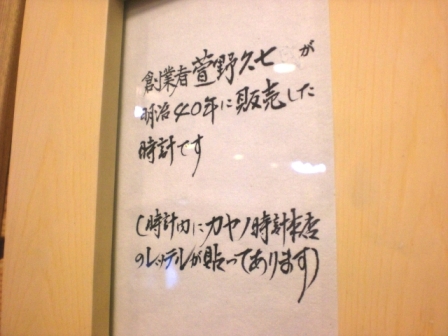 創業者萱野久七が
明治40年に販売した
時計です
(時計内にカヤノ時計本店
のレッテルが貼ってあります)